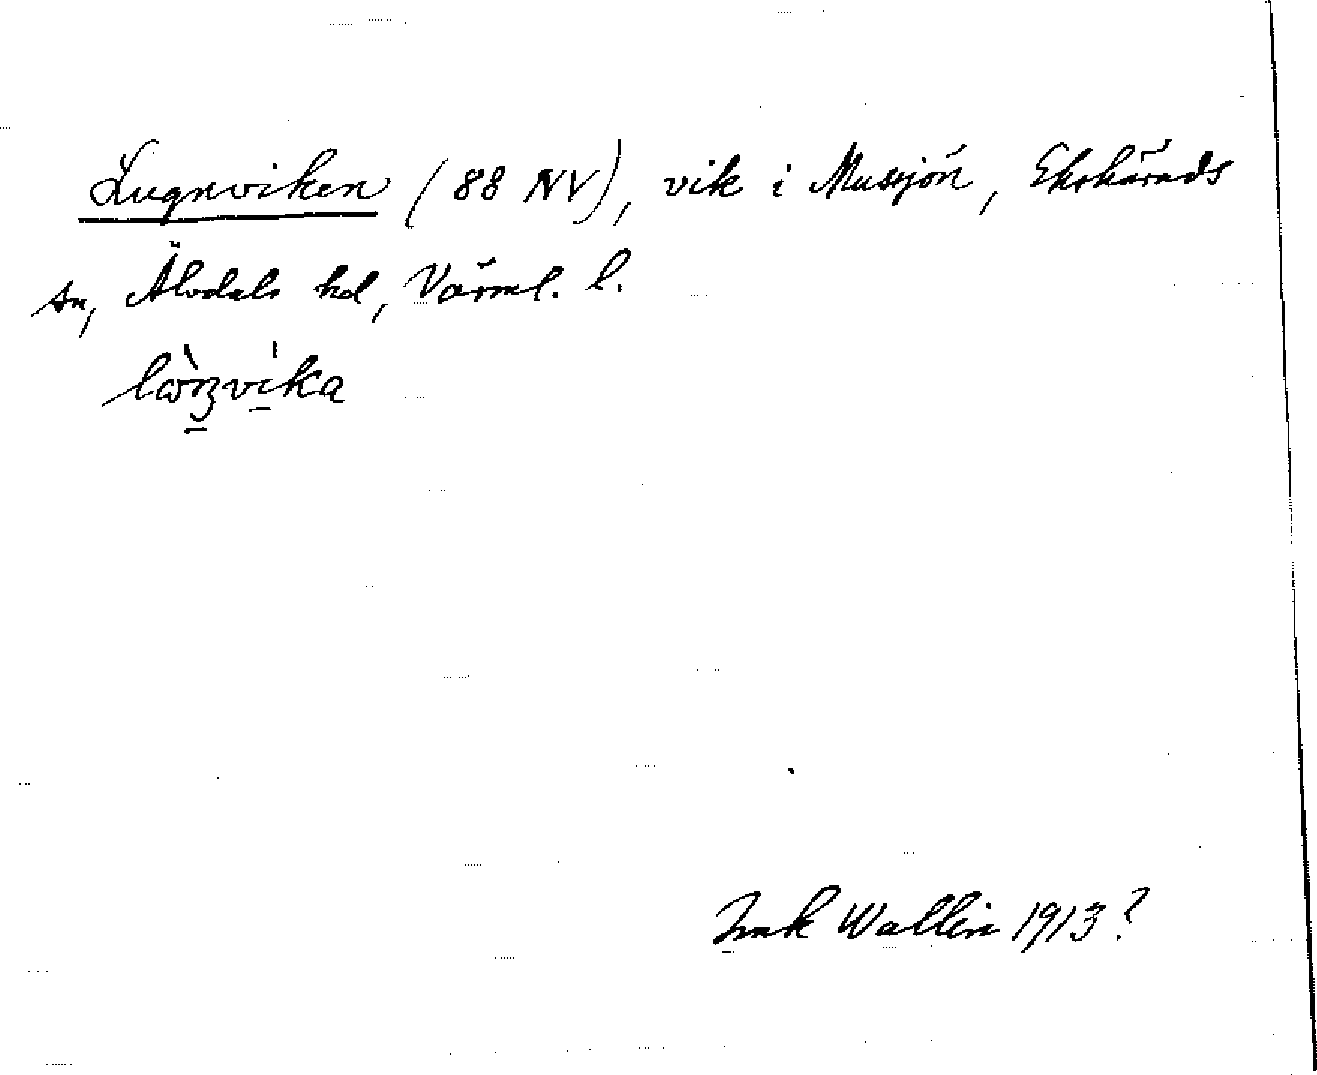 Lugnviken (88 NV), vik i Mussjön, Ekshärads
sn, Älvdals hd, Värml. l.
Ink Wallin 1913?